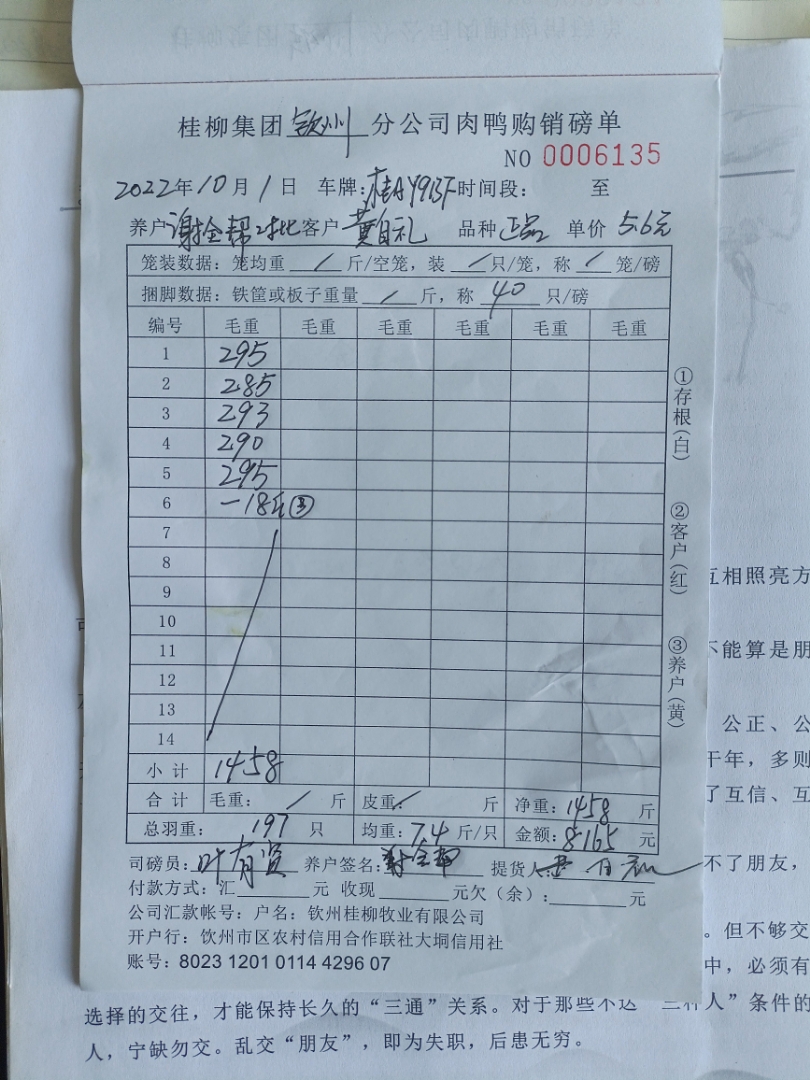 桂柳集团 钦州 分公司肉鸭购销磅单
NO 0006135
2022年10月1日 车牌: 时间段: 至
养户 谢全帮 对比 客户 黄自礼 品种 正品 单价 5.6元
笼装数据: 笼均重 / 斤/空笼, 装 / 只/笼, 称 / 笼/磅
捆脚数据: 铁筐或板子重量 / 斤, 称 40 只/磅
编号 毛重 毛重 毛重 毛重 毛重 毛重
1 295
2 285
3 293
4 290
5 295
6 -18
7
8
9
10
11
12
13
14
小计 1458
合计 毛重: / 斤 皮重: / 斤 净重: 1458 斤
总羽重: 197 只 均重: 7.4 斤/只 金额: 8165 元
司磅员: 叶有贤 养户签名: 谢全帮 提货人: 黄自礼
付款方式: 汇 元 收现 元欠(余): 元
公司汇款帐号: 户名: 钦州桂柳牧业有限公司
开户行: 饮州市区农村信用合作联社大垌信用社
账号: 8023 1201 0114 4296 07
①存根(白)
②客户(红)
③养户(黄)
互相照亮方
不能算是朋
公正、公
干年，多则
了互信、互
不了朋友，
。但不够交
中，必须有
选择的交往，才能保持长久的“三通”关系。对于那些不达“三种人”条件的
人，宁缺勿交。乱交“朋友”，即为失职，后患无穷。